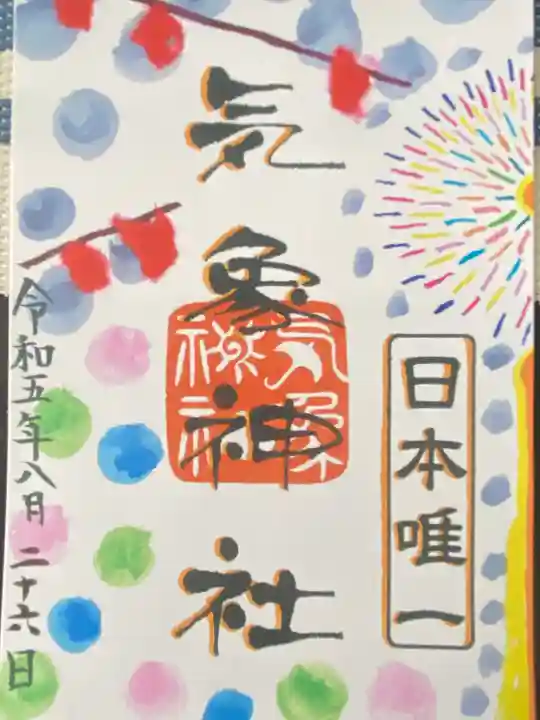 日本唯一
気象神社
気象神社
令和五年八月二十六日